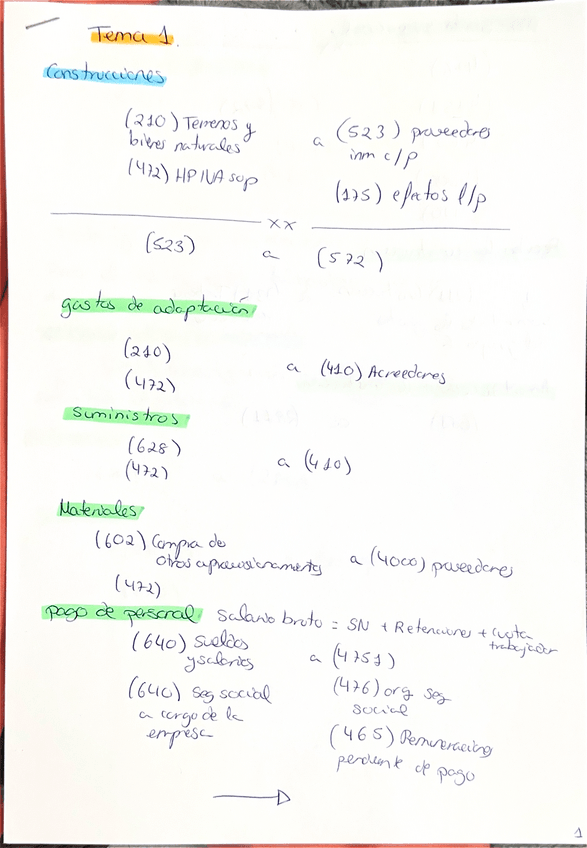 Tema 1.
Construcciones
(210) Terrenos y a (523) proveedores
bienes naturales inm c/p
(472) HP IVA sop (175) efectos l/p
xx
(523) a (572)
gastos de adaptación
(210)
(472) a (410) Acreedores
Suministros
(628)
(472) a (410)
Materiales
(602) Compra de
otros aprovisionamients a (4000) proveedores
(472)
pago de personal: Salario bruto = SN + Retenciones + cuota
trabajador
(640) sueldos a (4751)
y salarios
(640) seg social (476) org seg
a cargo de la social
empresa (465) Remuneración
pendiente de pago
1